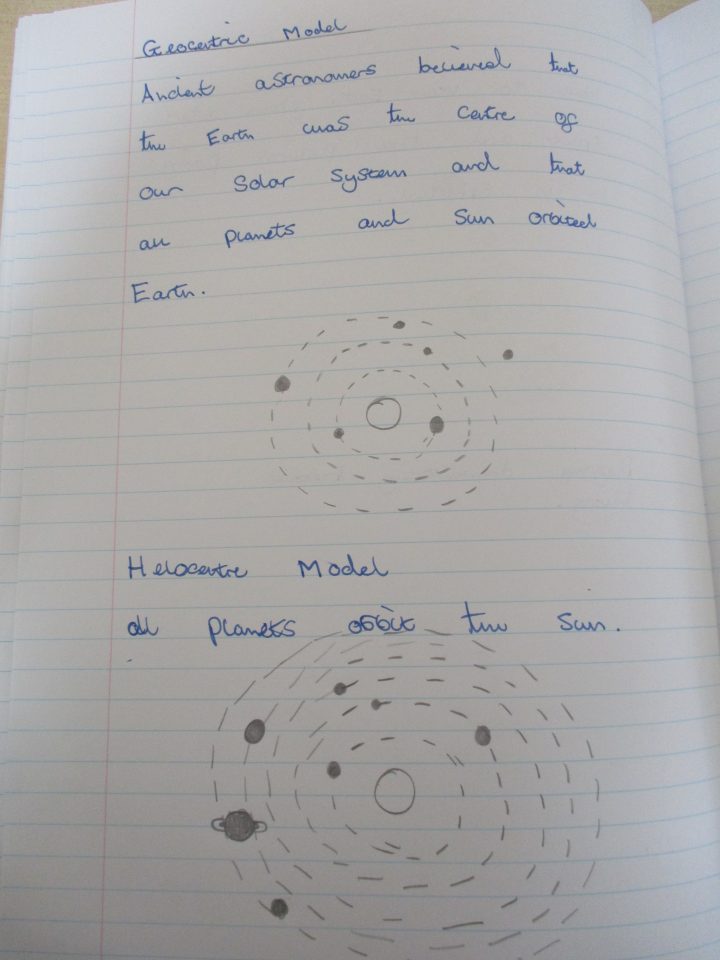 Geocentric Model
Ancient astronomers believed that
the Earth was the Centre of
our Solar System and that
all planets and Sun orbited
Earth.
Helocentre Model
all planets orbit the Sun.